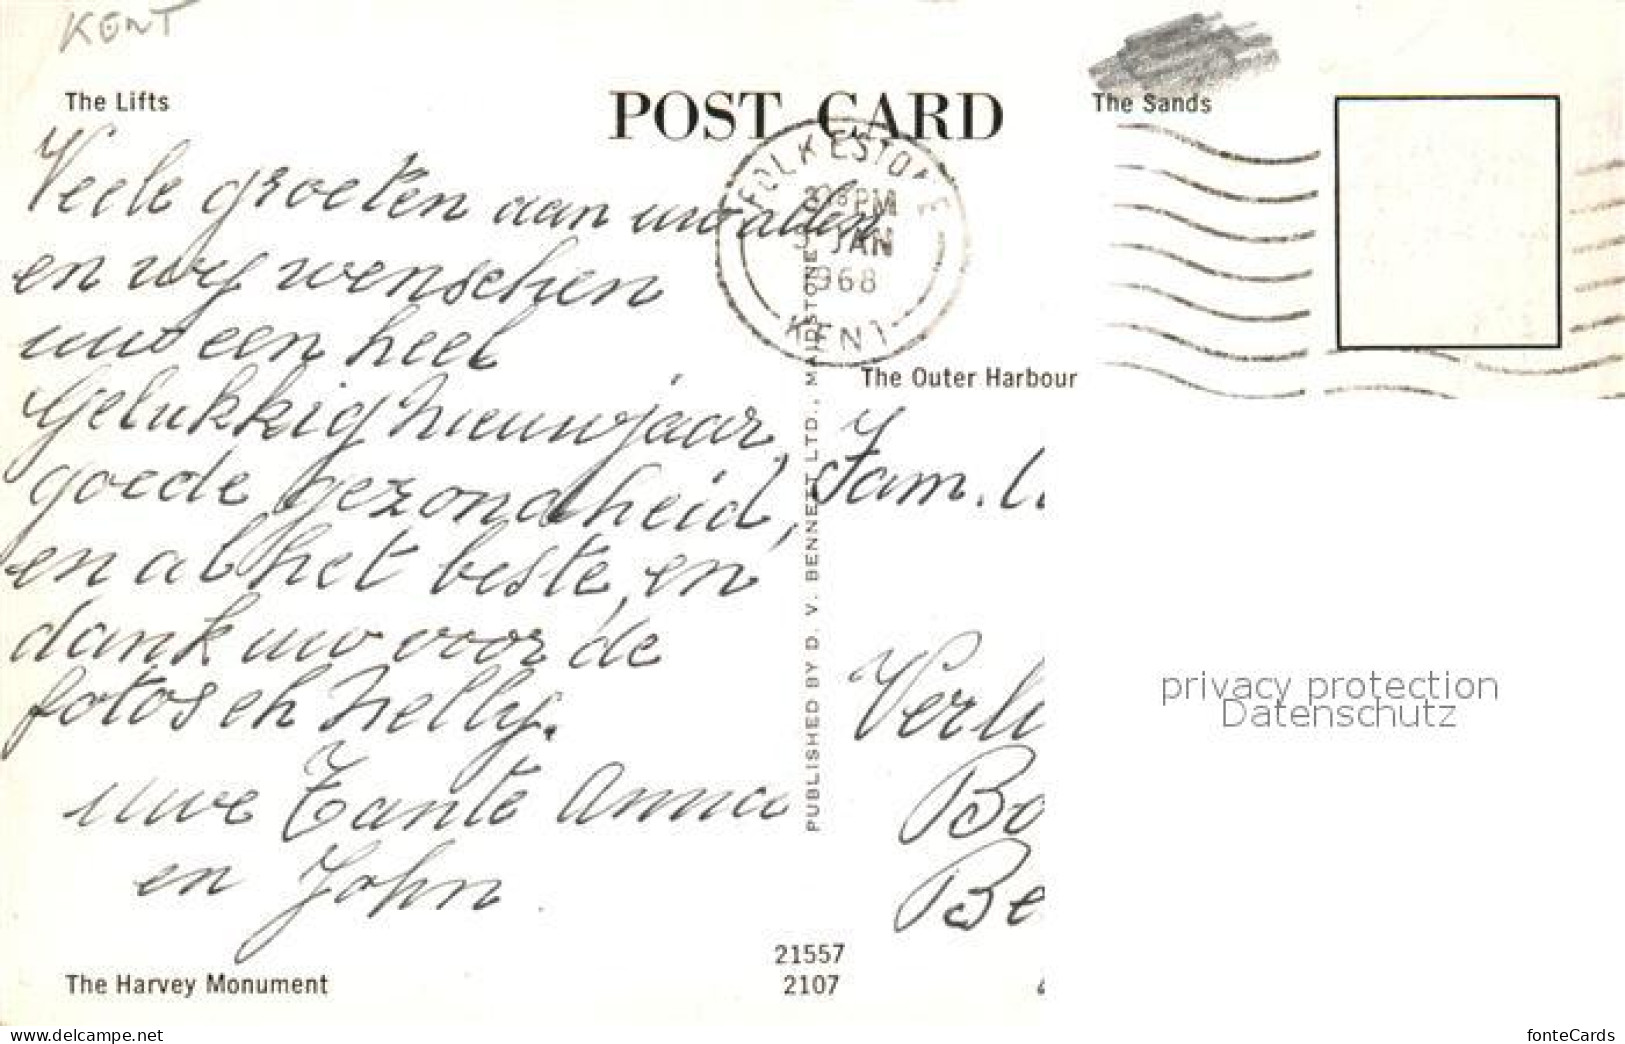 KENT
The Lifts
POST CARD
The Sands
FOLKESTONE
PM
JAN
1968
KENT
Veele groeten aan uw allen
en wy wenschen
uw een heel
Gelukkig nieuwjaar
goede gezondheid,
en al het beste, en
dank uw voor de
fotos eh Nelly.
uwe Tante Anna
en John.
The Outer Harbour
Fam.
PUBLISHED BY D. V. BENNETT LTD., MAIDSTONE
privacy protection
Datenschutz
Verli
Bo
Be
21557
2107
The Harvey Monument
www.delcampe.net
fonteCards